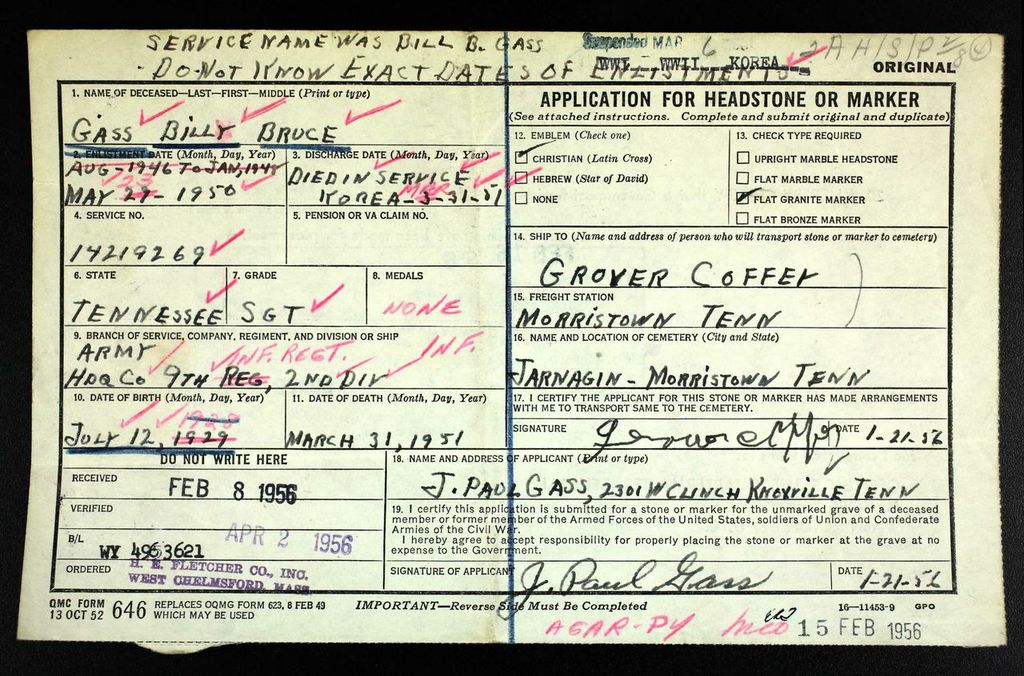 SERVICE NAME WAS BILL B. GASS
DO NOT KNOW EXACT DATES OF ENLISTMENTS
Suspended MAR 6
WWI WWII KOREA
ORIGINAL
1. NAME OF DECEASED—LAST—FIRST—MIDDLE (Print or type)
GASS BILLY BRUCE
2. ENLISTMENT DATE (Month, Day, Year)
AUG-1946 TO JAN, 1948
MAY 29- 1950
3. DISCHARGE DATE (Month, Day, Year)
DIED IN SERVICE
KOREA-3-31-51
4. SERVICE NO.
14219269
5. PENSION OR VA CLAIM NO.
6. STATE
TENNESSEE
7. GRADE
SGT
8. MEDALS
NONE
9. BRANCH OF SERVICE, COMPANY, REGIMENT, AND DIVISION OR SHIP
ARMY INF. REGT. INF.
HDQ CO 9TH REG, 2ND DIV
10. DATE OF BIRTH (Month, Day, Year)
1928
JULY 12, 1929
11. DATE OF DEATH (Month, Day, Year)
MARCH 31, 1951
DO NOT WRITE HERE
RECEIVED
FEB 8 1956
VERIFIED
APR 2 1956
B/L
WY 4963621
ORDERED
H. E. FLETCHER CO., INC.
WEST CHELMSFORD, MASS.
APPLICATION FOR HEADSTONE OR MARKER
(See attached instructions. Complete and submit original and duplicate)
12. EMBLEM (Check one)
CHRISTIAN (Latin Cross)
HEBREW (Star of David)
NONE
13. CHECK TYPE REQUIRED
UPRIGHT MARBLE HEADSTONE
FLAT MARBLE MARKER
FLAT GRANITE MARKER
FLAT BRONZE MARKER
14. SHIP TO (Name and address of person who will transport stone or marker to cemetery)
GROVER COFFEY
15. FREIGHT STATION
MORRISTOWN TENN
16. NAME AND LOCATION OF CEMETERY (City and State)
JARNAGIN - MORRISTOWN TENN
17. I CERTIFY THE APPLICANT FOR THIS STONE OR MARKER HAS MADE ARRANGEMENTS
WITH ME TO TRANSPORT SAME TO THE CEMETERY.
SIGNATURE
DATE
1-21-56
18. NAME AND ADDRESS OF APPLICANT (Print or type)
J. PAUL GASS, 2301 W CLINCH KNOXVILLE TENN
19. I certify this application is submitted for a stone or marker for the unmarked grave of a deceased
member or former member of the Armed Forces of the United States, soldiers of Union and Confederate
Armies of the Civil War.
I hereby agree to accept responsibility for properly placing the stone or marker at the grave at no
expense to the Government.
SIGNATURE OF APPLICANT
J. Paul Gass
DATE
1-21-56
QMC FORM
13 OCT 52 646 REPLACES OQMG FORM 623, 8 FEB 49
WHICH MAY BE USED
IMPORTANT—Reverse Side Must Be Completed
16—11453-9 GPO
AGAR-PY
15 FEB 1956